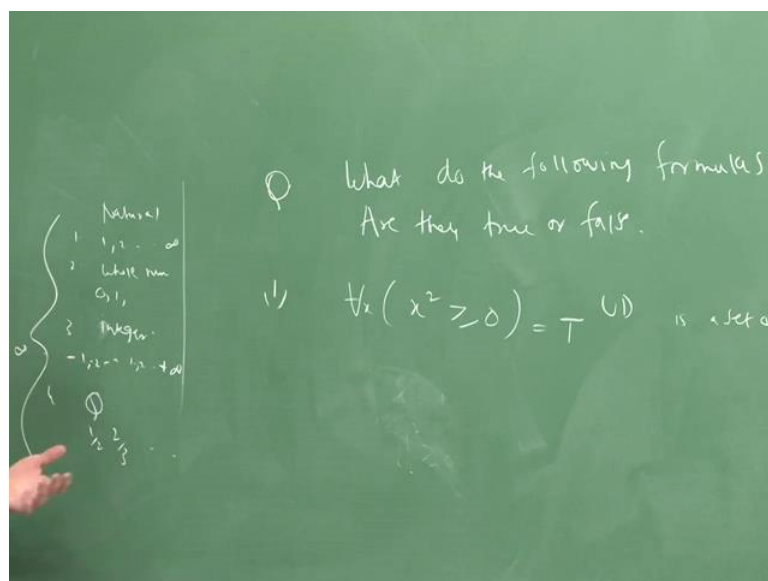 Natural
1 1, 2 ... ∞
2 Whole num
0, 1,
3 Integer.
∞
- 1, -2 -- 1, 2 .. + ∞
Q
1/2 2/3 ..
Q What do the following formulas
Are they true or false.
(1) ∀x ( x² ≥ 0 ) = T (U) is a set o